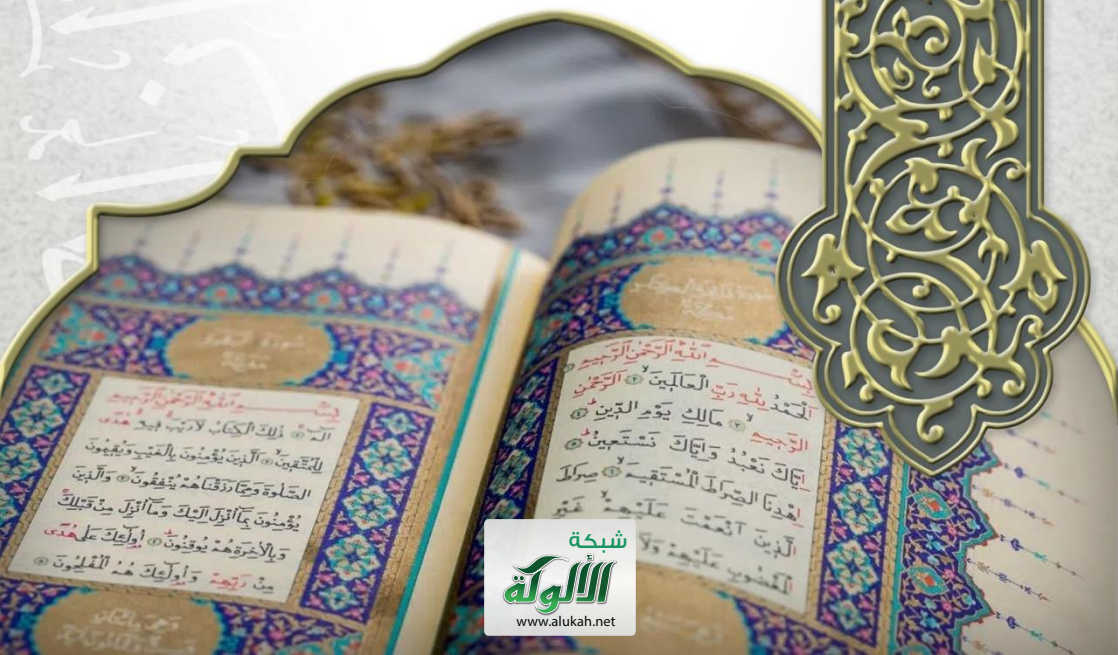 بِسْمِ اللّٰهِ الرَّحْمٰنِ الرَّحِيمِ
اَلْحَمْدُ لِلّٰهِ رَبِّ الْعَالَمِينَ ٢ اَلرَّحْمٰنِ
الرَّحِيمِ ٣ مَالِكِ يَوْمِ الدِّينِ ٤
اِيَّاكَ نَعْبُدُ وَاِيَّاكَ نَسْتَعِينُ ٥
اِهْدِنَا الصِّرَاطَ الْمُسْتَقِيمَ ٦ صِرَاطَ
الَّذِينَ اَنْعَمْتَ عَلَيْهِمْ غَيْرِ
الْمَغْضُوبِ عَلَيْهِمْ وَلَا
سُورَةُ الْبَقَرَةِ
بِسْمِ اللّٰهِ الرَّحْمٰنِ الرَّحِيمِ
الٓمٓ ١ ذٰلِكَ الْكِتَابُ لَارَيْبَ فِيهِ هُدًى
لِلْمُتَّقِينَ ٢ اَلَّذِينَ يُؤْمِنُونَ بِالْغَيْبِ وَيُقِيمُونَ
الصَّلٰوةَ وَمِمَّا رَزَقْنَاهُمْ يُنْفِقُونَ ٣ وَالَّذِينَ
يُؤْمِنُونَ بِمَا اُنْزِلَ اِلَيْكَ وَمَا اُنْزِلَ مِنْ قَبْلِكَ
وَبِالْاٰخِرَةِ هُمْ يُوقِنُونَ ٤ اُولٰئِكَ عَلٰى هُدًى
مِنْ رَبِّهِمْ وَاُولٰئِكَ هُمُ الْمُفْلِحُونَ ٥
شبكة
الألوكة
www.alukah.net